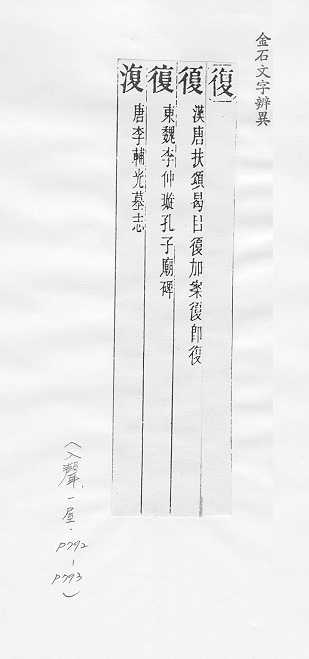 金石文字辨異
復
復 漢唐扶頌曷㠯復加案復即復
復 東魏李仲璇孔子廟碑
澓 唐李輔光墓志
(入聲、一屋.P792-P793)